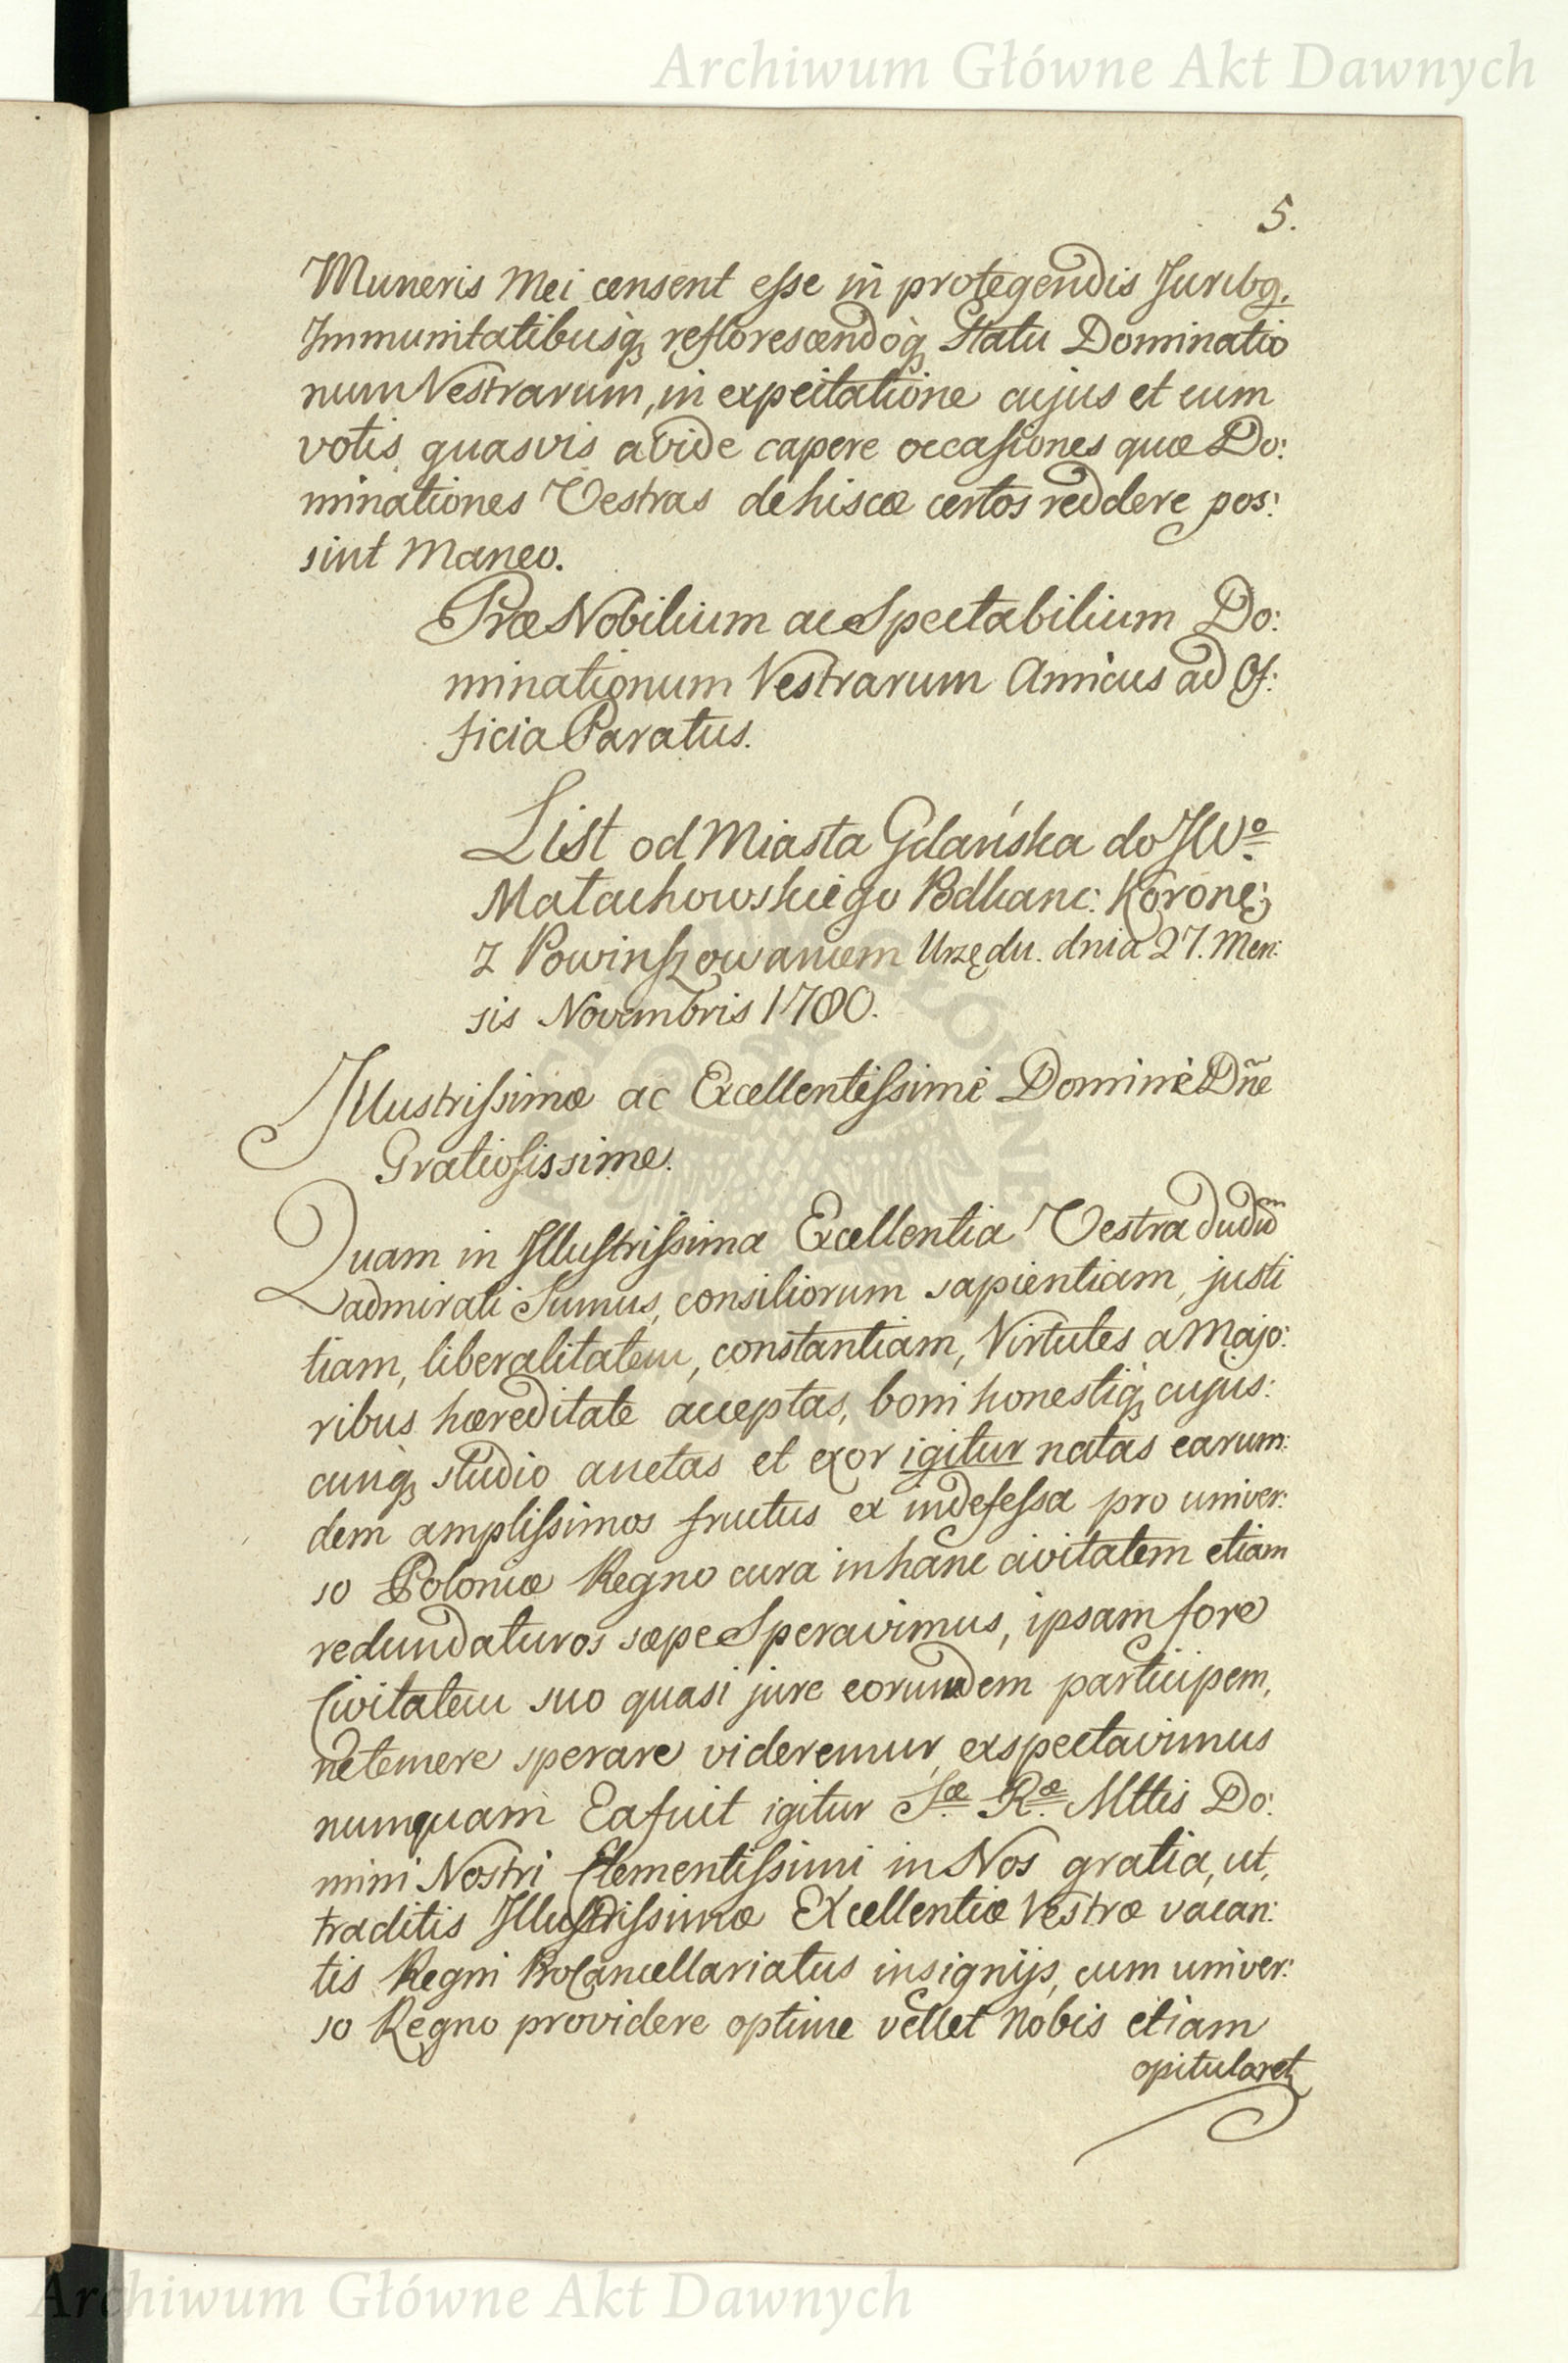 Archiwum Główne Akt Dawnych
5.
Muneris Mei censent eſse in protegendis Juribq.
Immunitatibusq, reflorescendoq, Statu Dominatio
num Vestrarum, in expectatione cujus et cum
votis quasvis avide capere occaſiones quæ Do:
minationes Vestras de hisce certos reddere pos:
sint Maneo.
Præ Nobilium ac Spectabilium Do:
minationum Vestrarum Amicus ad Of:
ficia Paratus.
List od Miasta Gdańska do JWº
Małachowskiego Podkanc: Koronę;
z Powinſzowaniem Urzędu. dnia 27. Men:
sis Novembris 1780.
Illustriſsime ac Excellentiſsime Domine Dñe
Gratioſissime.
Quam in Illuſtriſsima Excellentia Vestra dudũ
admirati Sumus, consiliorum sapientiam, justi
tiam, liberalitatem, constantiam, Virtutes a Majo:
ribus hæreditate acceptas, boni honestiq, cujus:
cunq, studio auctas et exor igitur natas earum:
dem ampliſsimos fructus ex indefeſsa pro univer:
so Poloniæ Regno cura in hanc civitatem etiam
redundaturos sæpe Speravimus, ipsam fore
Civitatem suo quasi jure eorundem participem,
ne temere sperare videremur, exspectavimus
numquam Ea fuit igitur Sæ Ræ Mttis Do:
mini Nostri Clementiſsimi in Nos gratia, ut,
traditis Illuſtriſsimæ Excellentiæ Vestræ vacan:
tis Regni ProCancellariatus insignijs, cum univer:
so Regno providere optime vellet Nobis etiam
opitularet,
Archiwum Główne Akt Dawnych